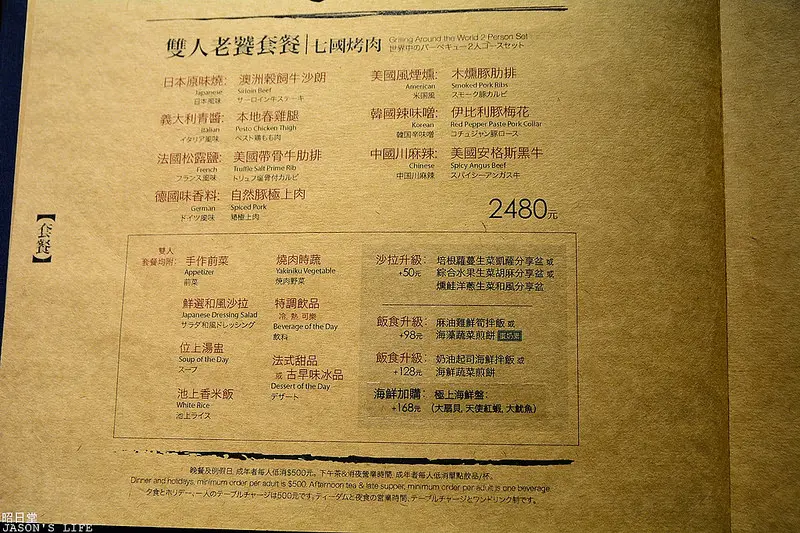 雙人老饕套餐|七國烤肉 Grilling Around the World 2-Person Set
世界中のバーベキュー2人コースセット
日本原味燒: 澳洲穀飼牛沙朗
Japanese Sirloin Beef
日本風味 サーロイン牛ステーキ
義大利青醬: 本地春雞腿
Italian Pesto Chicken Thigh
イタリア風味 ペスト鶏もも肉
法國松露鹽: 美國帶骨牛肋排
French Truffle Salt Prime Rib
フランス風味 トリュフ塩骨付カルビ
德國味香料: 自然豚極上肉
German Spiced Pork
ドイツ風味 豬極上肉
美國風煙燻: 木燻豚肋排
American Smoked Pork Ribs
米国風 スモーク豚カルビ
韓國辣味噌: 伊比利豚梅花
Korean Red Pepper Paste Pork Collar
韓国辛味噌 コチュジャン豚ロース
中國川麻辣: 美國安格斯黑牛
Chinese Spicy Angus Beef
中国川麻辣 スパイシーアンガス牛
2480元
【套餐】
雙人
套餐均附:
手作前菜
Appetizer
前菜
鮮選和風沙拉
Japanese Dressing Salad
サラダ和風ドレッシング
位上湯盅
Soup of the Day
スープ
池上香米飯
White Rice
池上ライス
燒肉時蔬
Yakiniku Vegetable
焼肉野菜
特調飲品
冷, 熱, 可樂
Beverage of the Day
飲料
法式甜品
或 古早味冰品
Dessert of the Day
デザート
沙拉升級: 培根蘿蔓生菜凱薩分享盆 或
+50元 綜合水果生菜胡麻分享盆 或
燻鮭洋蔥生菜和風分享盆
飯食升級: 麻油雞鮮筍拌飯 或
+98元 海藻蔬菜煎餅 蛋奶素
飯食升級: 奶油起司海鮮拌飯 或
+128元 海鮮蔬菜煎餅
海鮮加購: 極上海鮮盤:
+168元 (大扇貝, 天使紅蝦, 大魷魚)
晚餐及例假日, 成年者每人低消$500元。下午茶&消夜營業時間, 成年者每人低消單點飲品/杯。
Dinner and holidays, minimum order per adult is $500. Afternoon tea & late supper, minimum order per adult is one beverage.
夕食とホリデー、一人のテーブルチャージは500元です。ティータムと夜食の営業時間、テーブルチャージとワンドリンク制です。
昭日堂
JASON'S LIFE